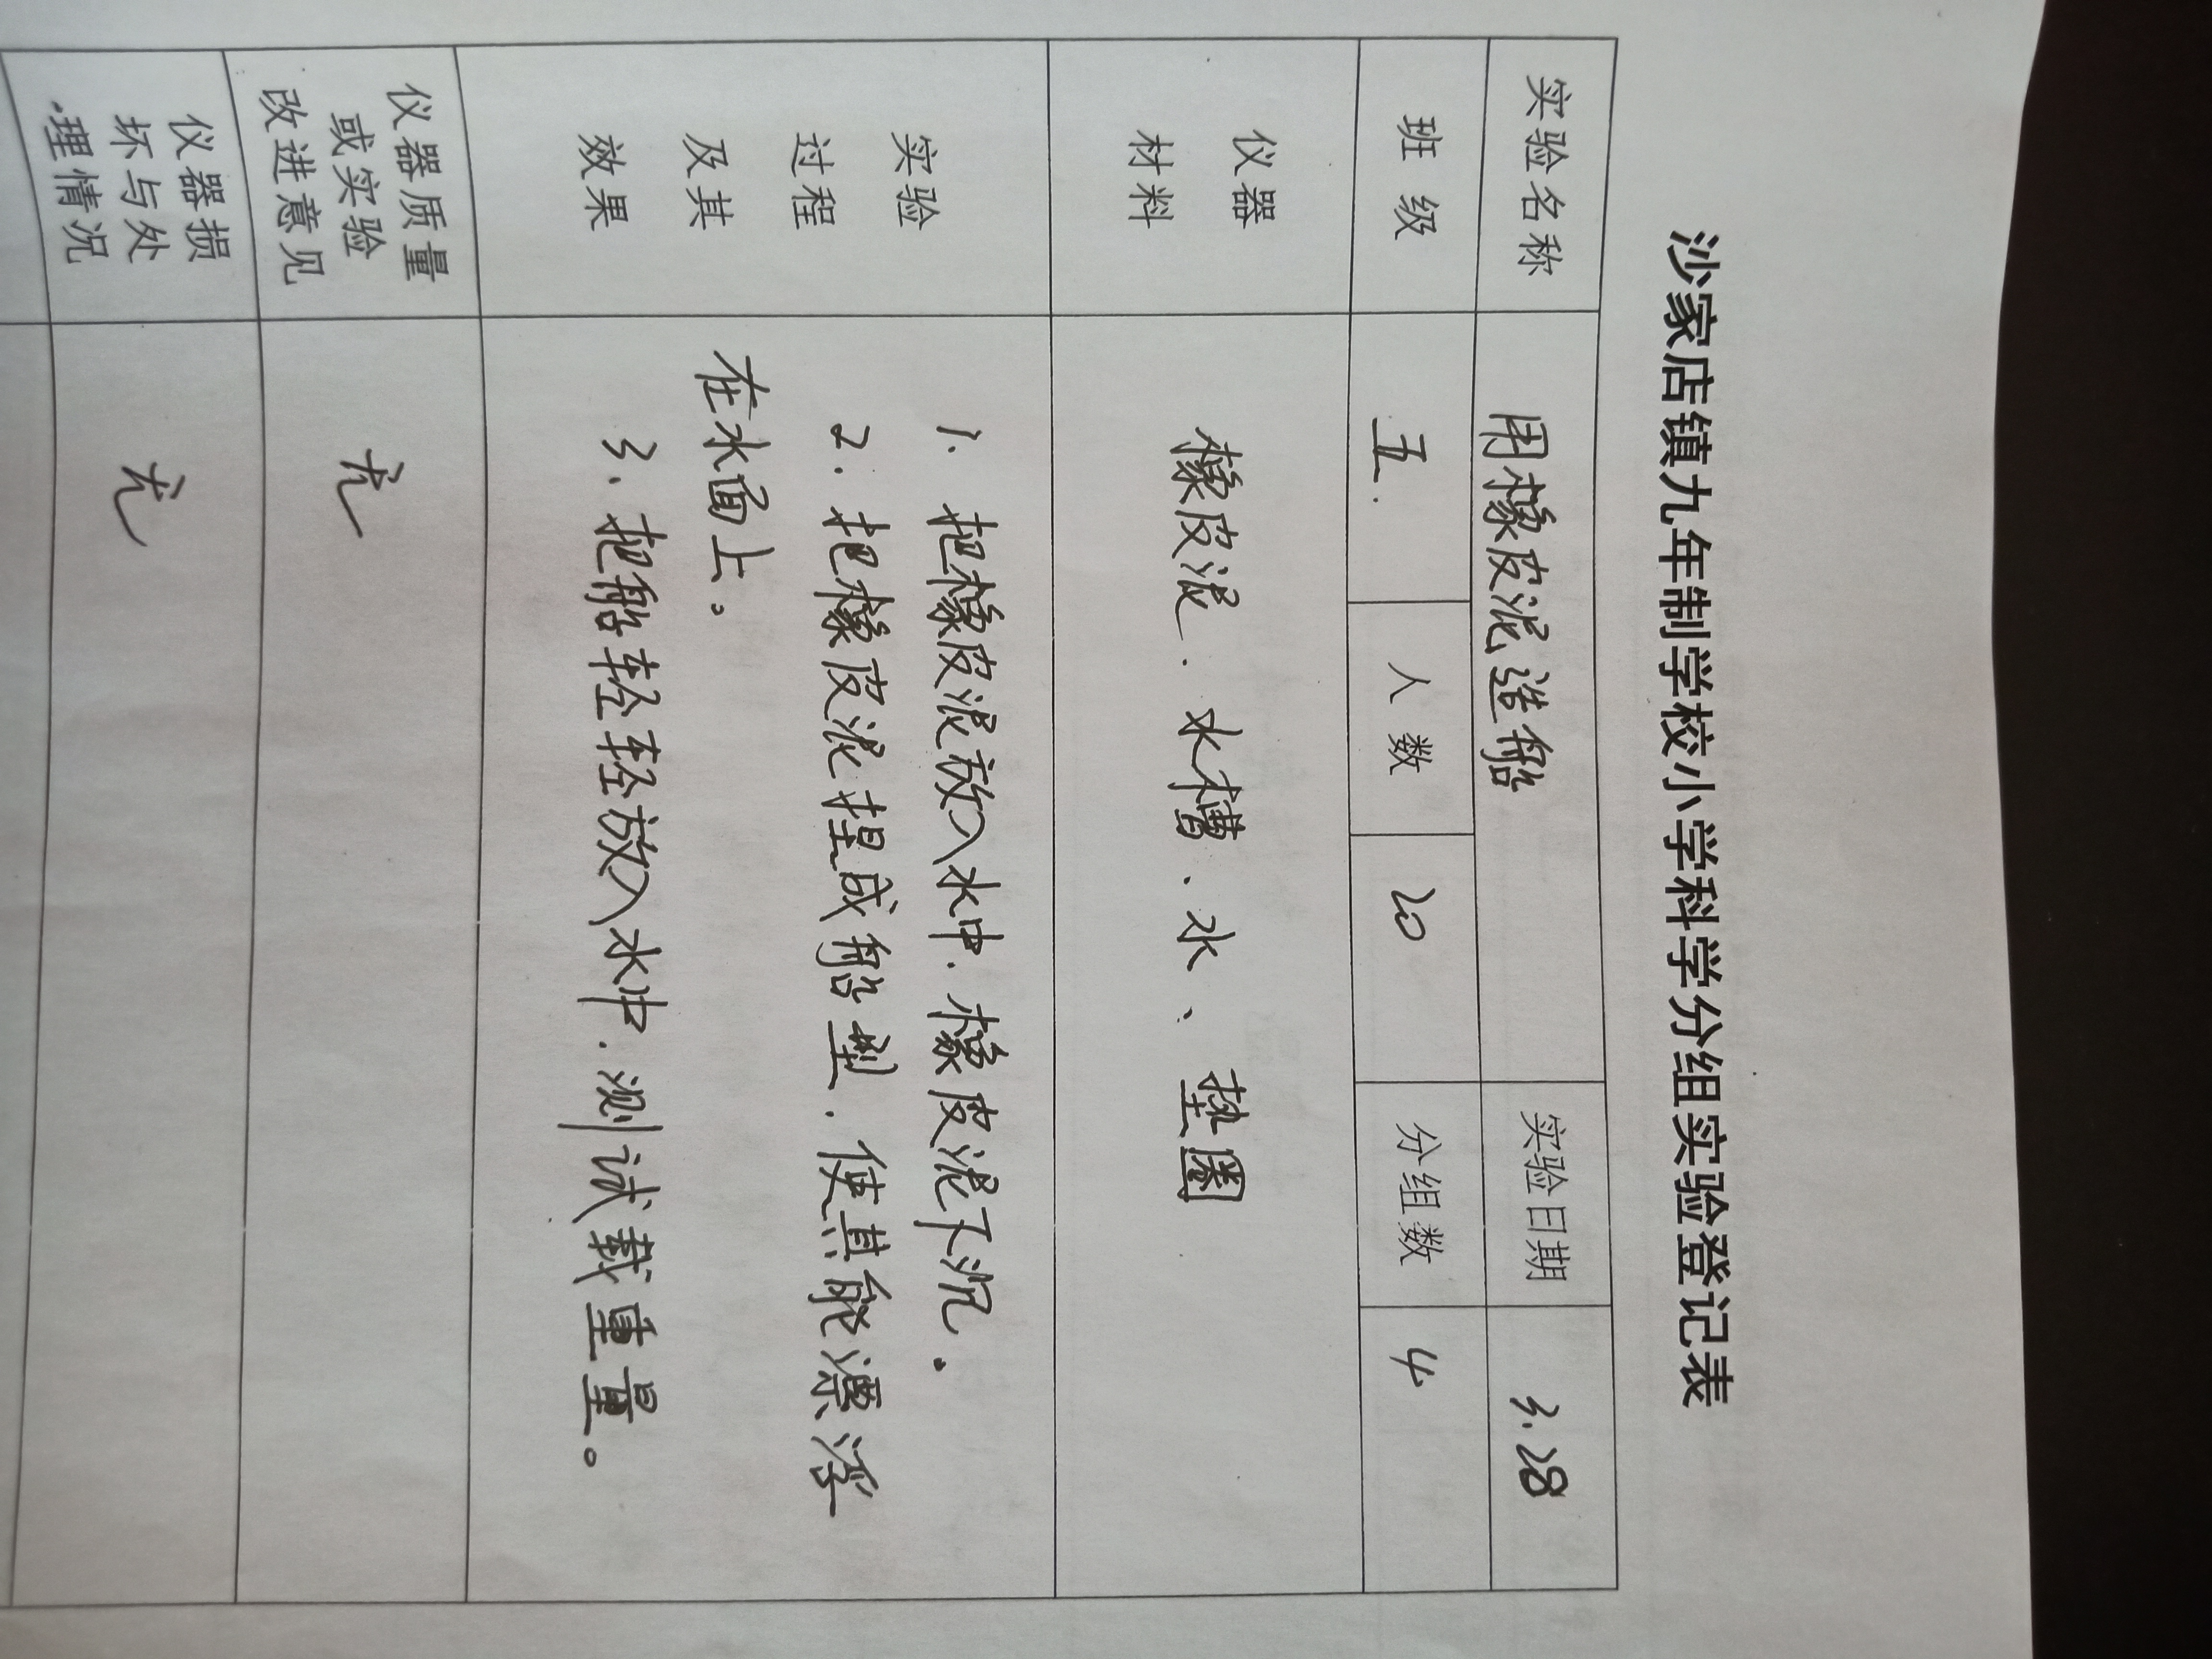 沙家店镇九年制学校小学科学分组实验登记表
实验名称 用橡皮泥造船 实验日期 3.28
班级 五. 人数 20 分组数 4
仪器
材料
橡皮泥、水槽、水、垫圈
实验
过程
及其
效果
1. 把橡皮泥放入水中.橡皮泥下沉。
2. 把橡皮泥捏成船型.使其能漂浮
在水面上。
3. 把船轻轻放入水中.测试载重量。
仪器质量
或实验
改进意见
无
仪器损
坏与处
理情况
无